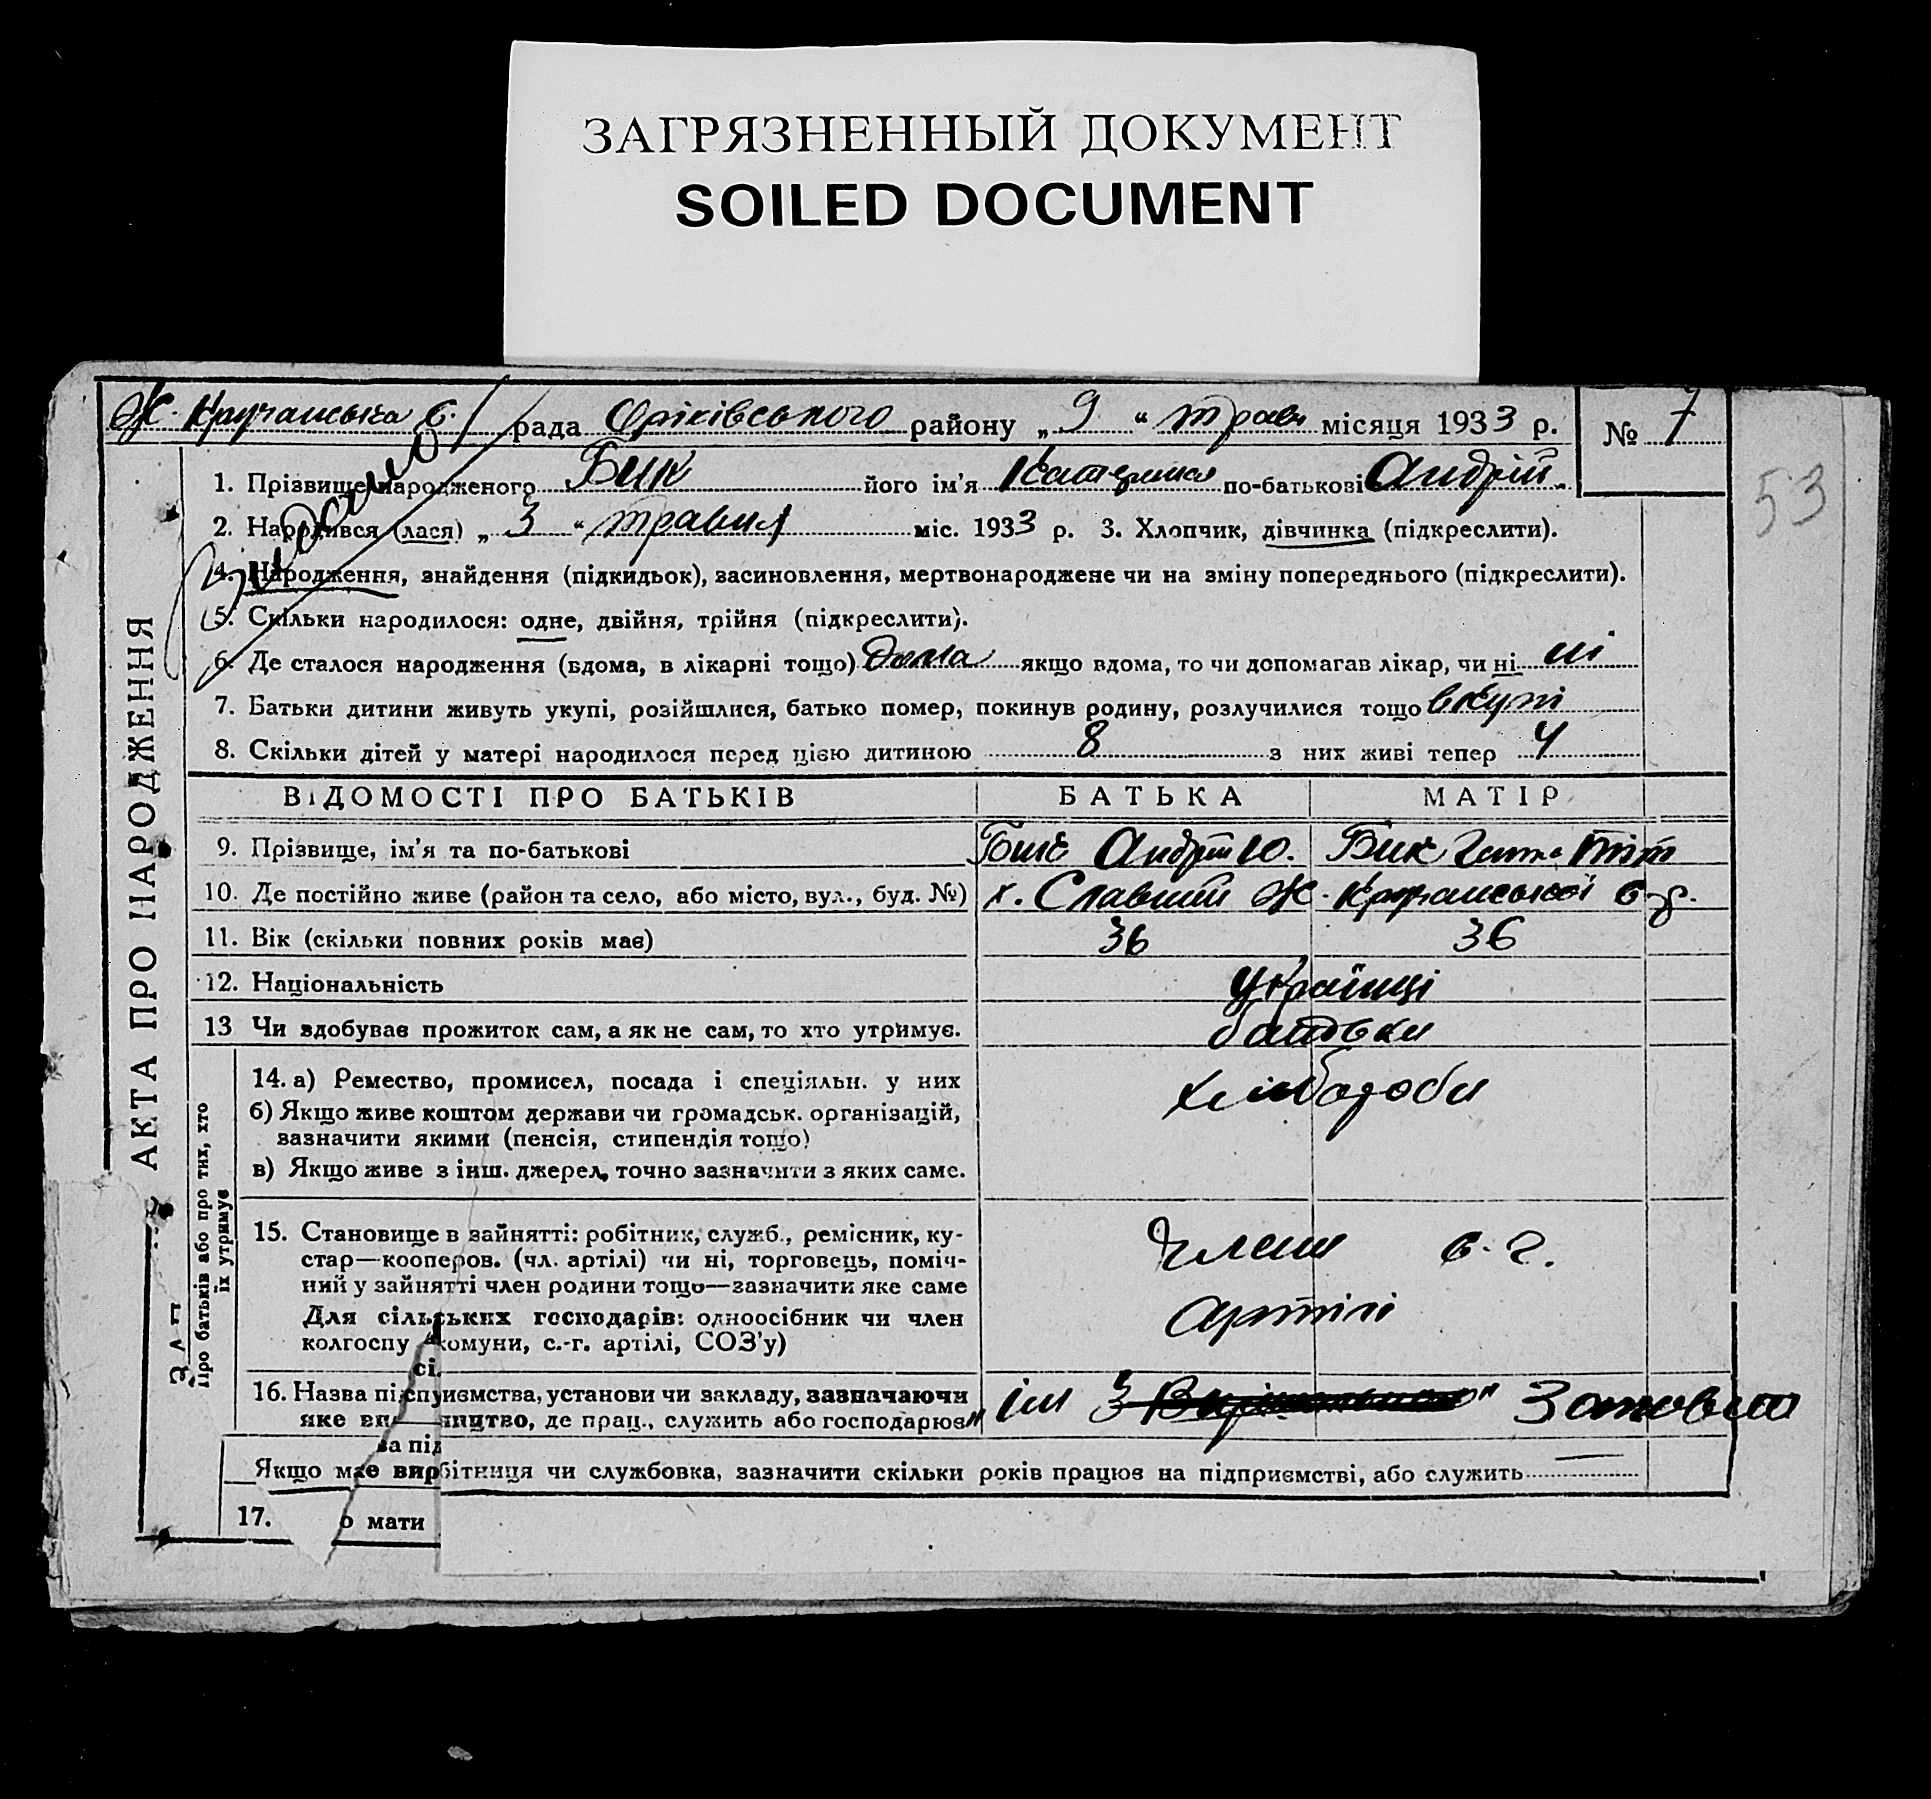 ЗАГРЯЗНЕННЫЙ ДОКУМЕНТ
SOILED DOCUMENT
Ж. Кручанська с. рада Оріківського району „ 9 “ травн місяця 1933 р. № 7
53
Видано
1. Прізвище народженого Бик його ім'я Катерина по-батькові Андрій.
2. Народився (лася) „ 3 “ травня міс. 1933 р. 3. Хлопчик, дівчинка (підкреслити).
4. Народження, знайдення (підкидьок), засиновлення, мертвонароджене чи на зміну попереднього (підкреслити).
5. Скільки народилося: одне, двійня, трійня (підкреслити).
6. Де сталося народження (вдома, в лікарні тощо) дома якщо вдома, то чи допомагав лікар, чи ні ні
7. Батьки дитини живуть укупі, розійшлися, батько помер, покинув родину, розлучилися тощо вкупі
8. Скільки дітей у матері народилося перед цією дитиною 8 з них живі тепер 4
ВІДОМОСТІ ПРО БАТЬКІВ БАТЬКА МАТІР
9. Прізвище, ім'я та по-батькові Бик Андрій Ю. Бик
10. Де постійно живе (район та село, або місто, вул., буд. №) х. Славний Ж. Кручанської с р.
11. Вік (скільки повних років має) 36 36
12. Національність українці
13 Чи здобував прожиток сам, а як не сам, то хто утримує. батьки
14. а) Ремество, промисел, посада і спеціяльн. у них хлібороби
б) Якщо живе коштом держави чи громадськ. організацій,
зазначити якими (пенсія, стипендія тощо)
в) Якщо живе з інш. джерел, точно зазначити з яких саме.
15. Становище в зайнятті: робітник, служб., ремісник, ку-
стар—кооперов. (чл. артілі) чи ні, торговець, поміч-
ний у зайнятті член родини тощо—зазначити яке саме
Для сільських господарів: одноосібник чи член
колгоспу (комуни, с.-г. артілі, СОЗ'у)
члени с. г.
артілі
сі
16. Назва підприємства, установи чи закладу, зазначаючи
яке ви ництво, де прац., служить або господарює
ім Заповіт
ва під
Якщо має виробітниця чи службовка, зазначити скільки років працює на підприємстві, або служить —
17. о мати
АКТА ПРО НАРОДЖЕННЯ
ЗАП
Про батьків або про тих, хто
їх утримує